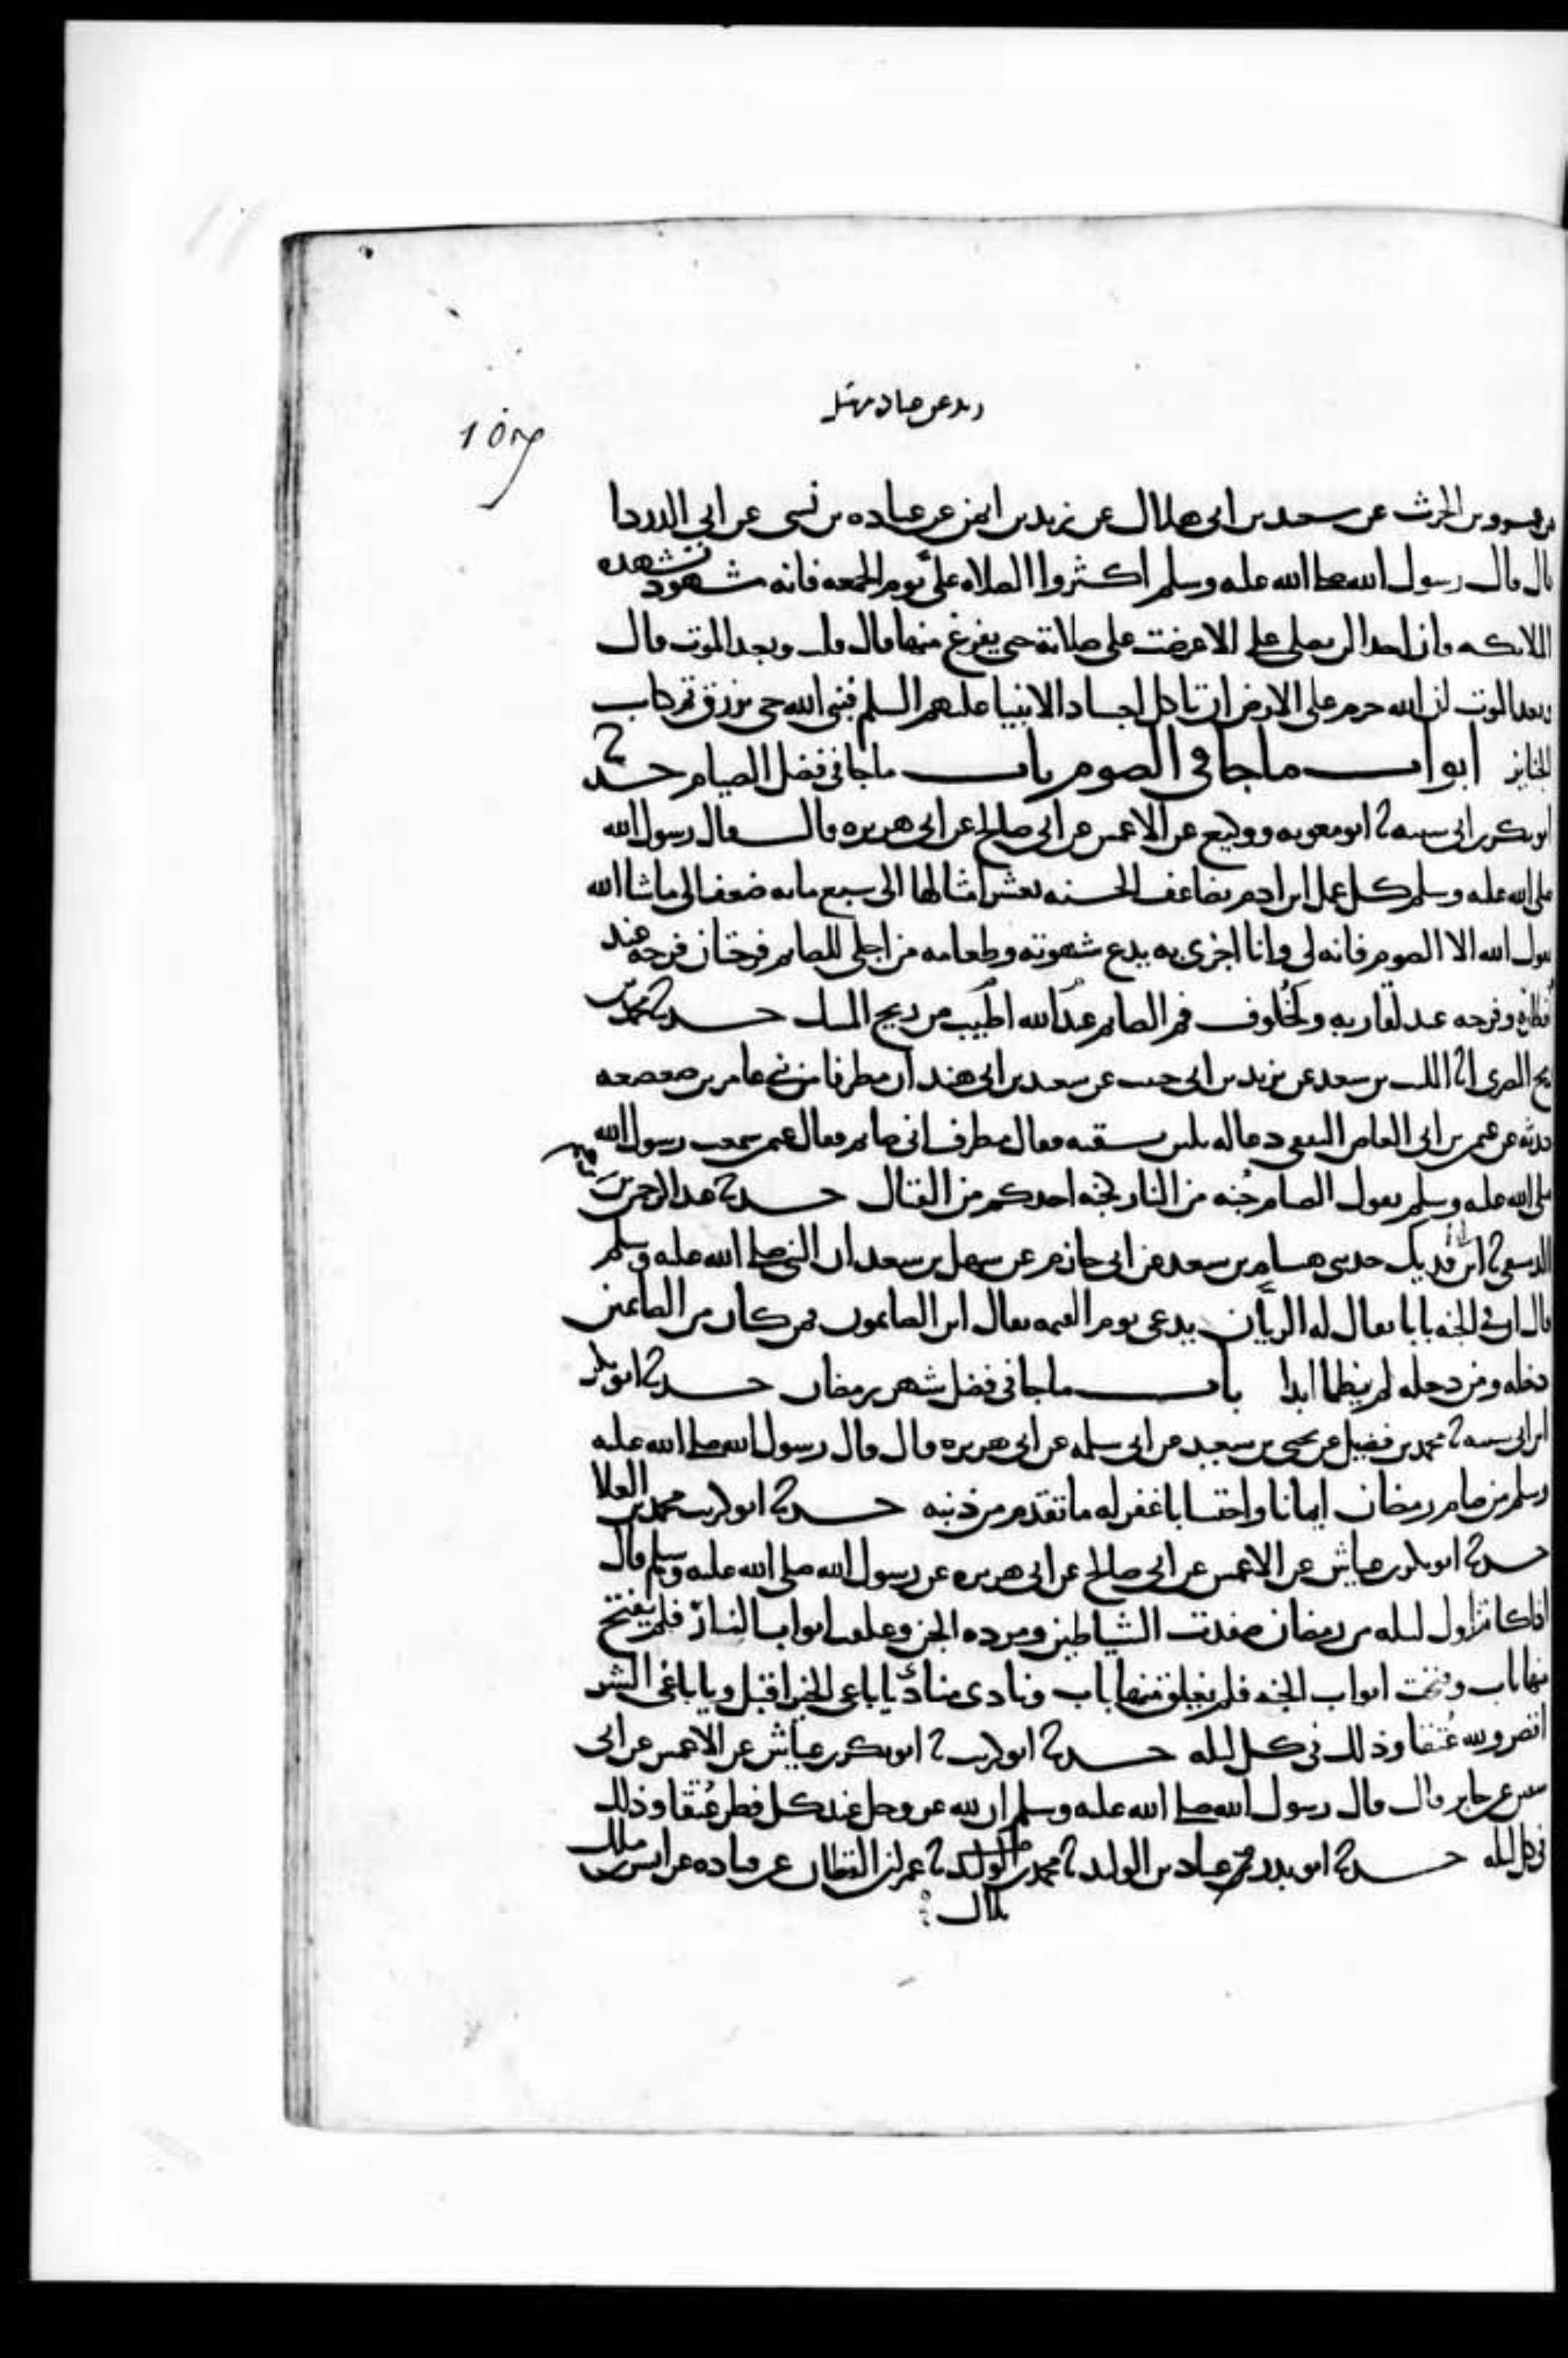 عن عمرو بن الحرث عن سعيد بن ابي هلال عن زيد بن ايمن عن عباده بن نسي عن ابي الدردا
قال قال رسول الله صلى الله عليه وسلم اكثروا الصلاه علي يوم الجمعه فانه مشهود تشهده
الملايكه وان احدا لن يصلي علي الا عرضت علي صلاته حتى يفرغ منها قال قلت وبعد الموت قال
وبعد الموت ان الله حرم على الارض ان تاكل اجساد الانبيا عليهم السلم فنبي الله حي يرزق تم كتاب
الجنايز ابواب ما جا في الصوم باب ما جا في فضل الصيام حدثنا
ابو بكر بن ابي شيبه ثنا ابو معويه ووكيع عن الاعمش عن ابي صالح عن ابي هريره قال قال رسول الله
صلى الله عليه وسلم كل عمل ابن ادم يضاعف الحسنه بعشر امثالها الى سبع مايه ضعف الى ما شا الله
يقول الله الا الصوم فانه لي وانا اجزي به يدع شهوته وطعامه من اجلي للصايم فرحتان فرحه عند
فطره وفرحه عند لقا ربه ولخلوف فم الصايم عند الله اطيب من ريح المسك حدثنا محمد بن
رمح المصري انا الليث بن سعد عن يزيد بن ابي حبيب عن سعيد بن ابي هند ان مطرفا من بني عامر بن صعصعه
حدثه عن عثمن بن ابي العاص الثقفي دعا له بلبن يسقيه فقال مطرف اني صايم فقال عثمن سمعت رسول الله
صلى الله عليه وسلم يقول الصيام جنه من النار كجنه احدكم من القتال حدثنا عبد الرحمن بن ابرهيم
الدمشقي ثنا ابن ابي فديك حدثني هشام بن سعد عن ابي حازم عن سهل بن سعد ان النبي صلى الله عليه وسلم
قال ان في الجنه بابا يقال له الريان يدعى يوم القيمه يقال اين الصايمون فمن كان من الصائمين
دخله ومن دخله لم يظما ابدا باب ما جا في فضل شهر رمضان حدثنا ابو بكر
ابن ابي شيبه ثنا محمد بن فضيل عن يحيى بن سعيد عن ابي سلمه عن ابي هريره قال قال رسول الله صلى الله عليه
وسلم من صام رمضان ايمانا واحتسابا غفر له ما تقدم من ذنبه حدثنا ابو كريب محمد بن العلا
حدثنا ابو بكر بن عياش عن الاعمش عن ابي صالح عن ابي هريره عن رسول الله صلى الله عليه وسلم قال
اذا كانت اول ليله من رمضان صفدت الشياطين ومرده الجن وغلقت ابواب النار فلم يفتح
منها باب وفتحت ابواب الجنه فلم يغلق منها باب ونادى مناد يا باغي الخير اقبل ويا باغي الشر
اقصر ولله عتقا وذلك في كل ليله حدثنا ابو كريب ثنا ابو بكر بن عياش عن الاعمش عن ابي
سفين عن جابر قال قال رسول الله صلى الله عليه وسلم ان لله عز وجل عند كل فطر عتقا وذلك
في كل ليله حدثنا ابو بدر عباد بن الوليد ثنا محمد بن بلال ثنا عمران القطان عن قتاده عن انس بن ملك
بلال